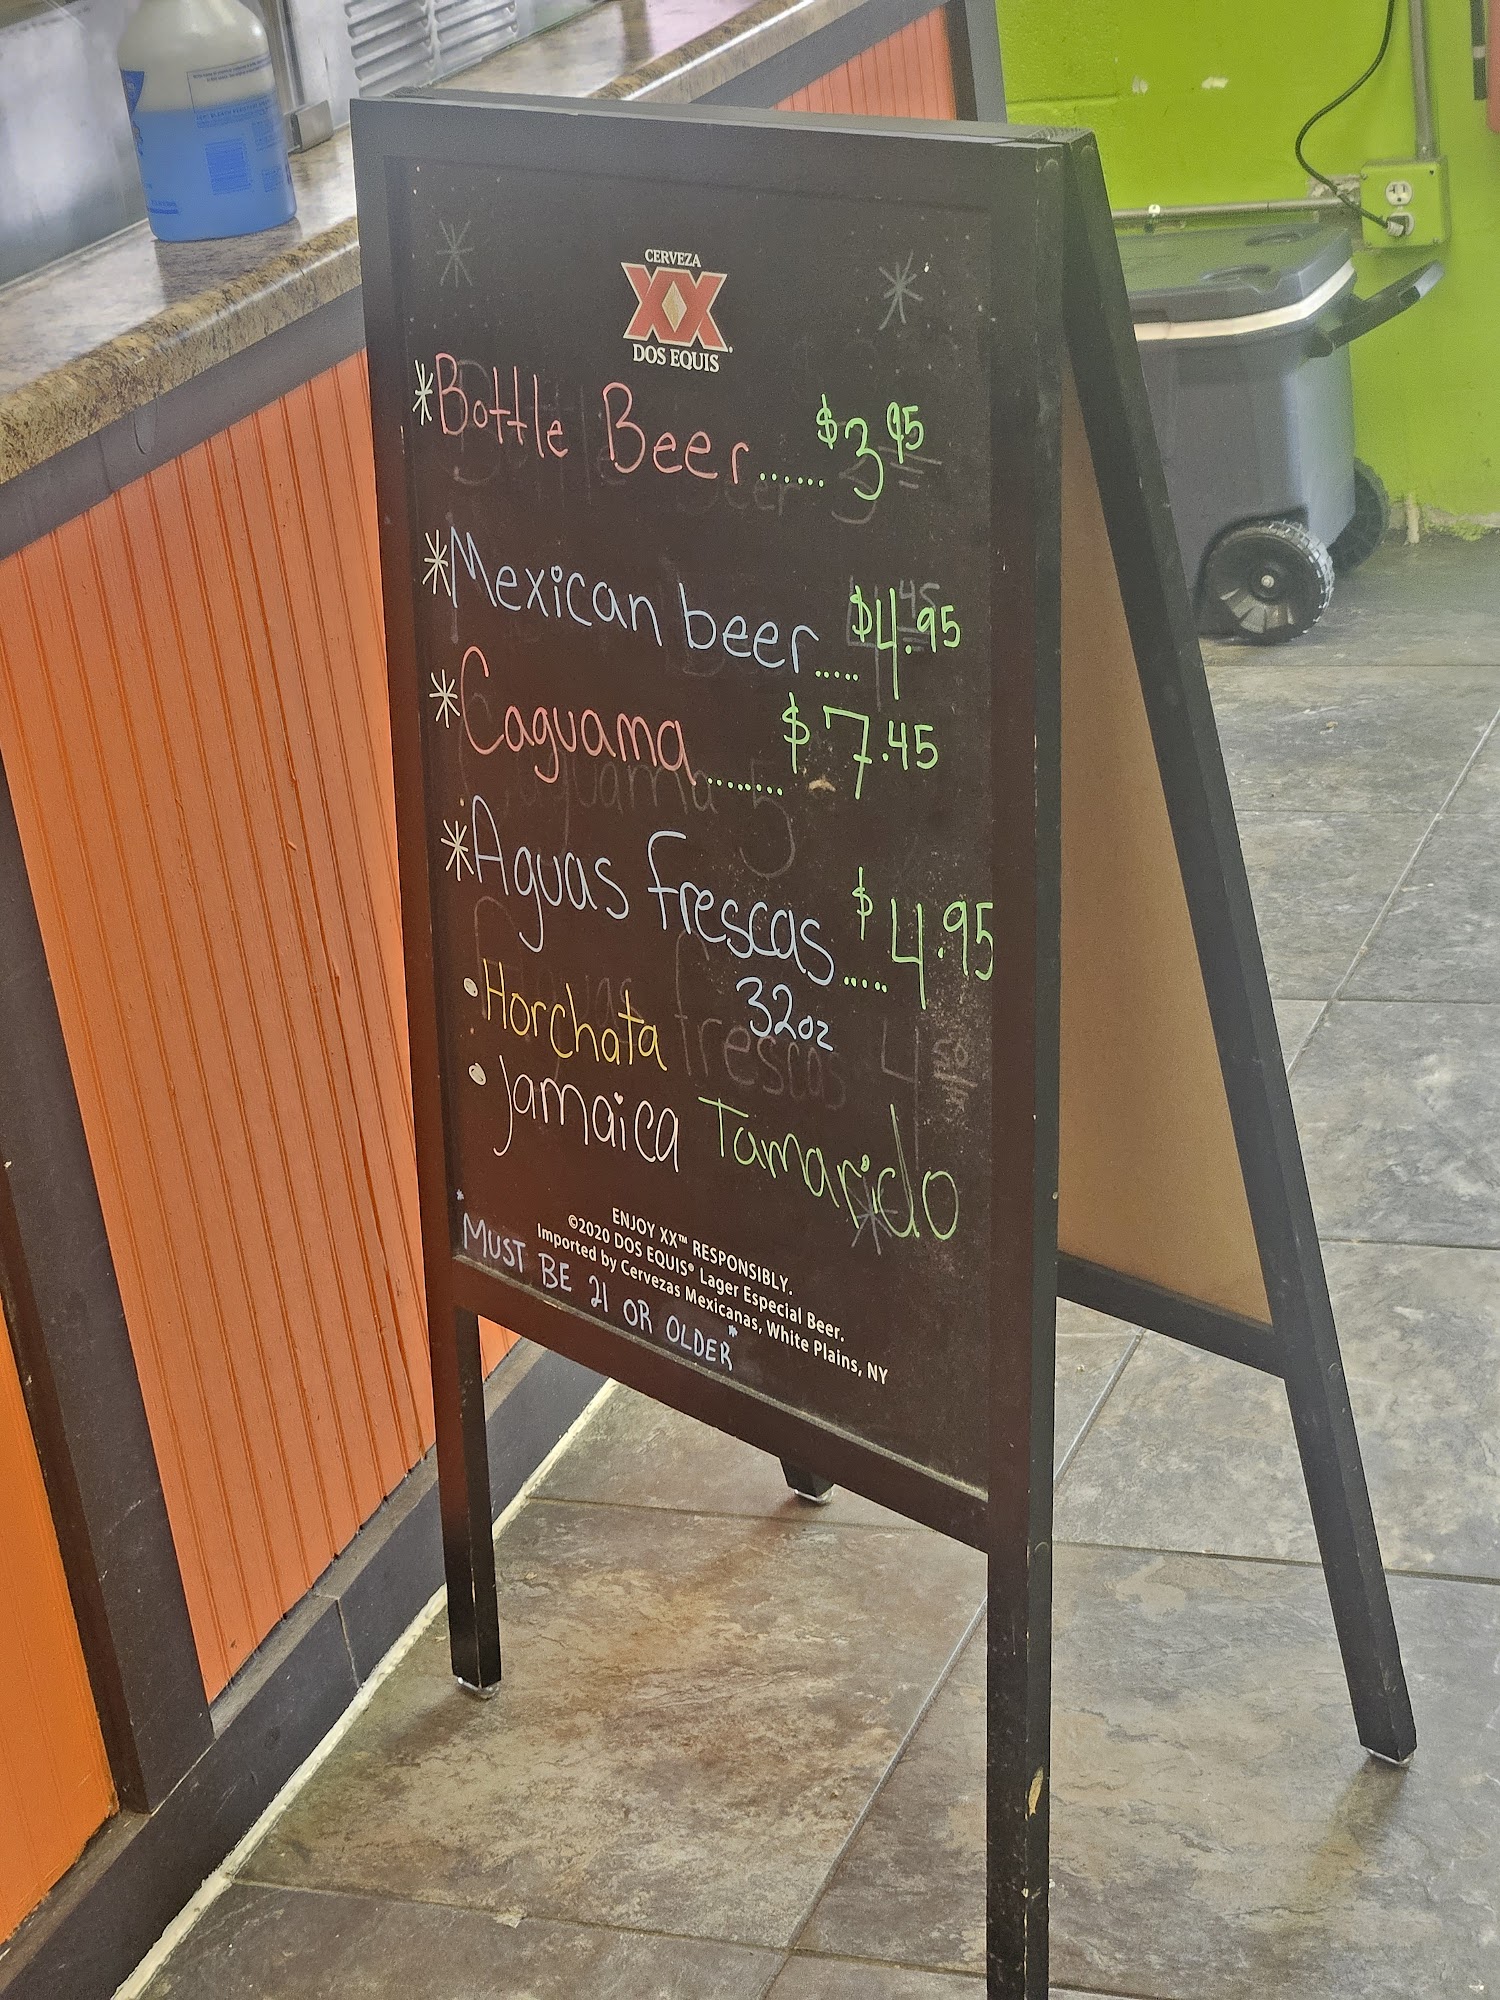 CERVEZA
XX
DOS EQUIS
*Bottle Beer......$3.95
*Mexican beer.....$4.95
*Caguama........$7.45
*Aguas frescas.....$4.95
32oz
• Horchata
• Jamaica Tamarido
ENJOY XX™ RESPONSIBLY.
©2020 DOS EQUIS® Lager Especial Beer.
Imported by Cervezas Mexicanas, White Plains, NY
*MUST BE 21 OR OLDER*